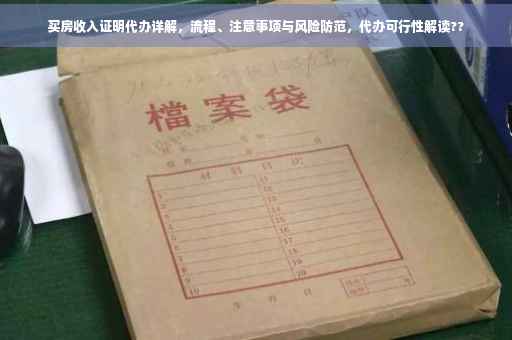 买房收入证明代办详解，流程、注意事项与风险防范，代办可行性解读??
檔案袋
材料目次
1 11
2 12
3 13
4 14
5 15
6 16
7 17
8 18
9 19
10 20
年 月 日